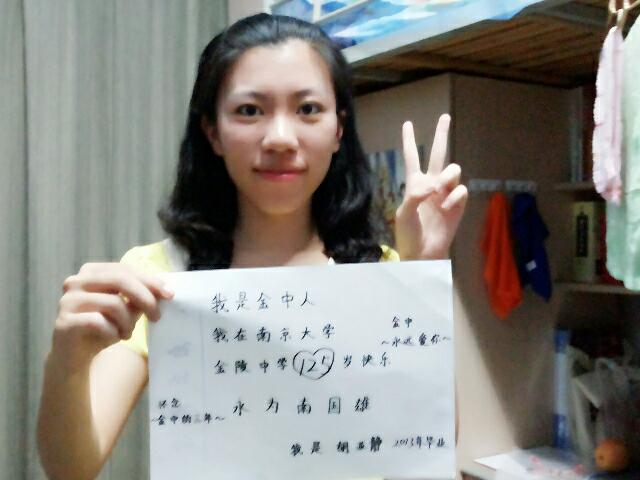 我是金中人
我在南京大学
金中
~永远爱你~
金陵中学125岁快乐
怀念
~金中的三年~
永为南国雄
我是 胡亚静 2013年毕业